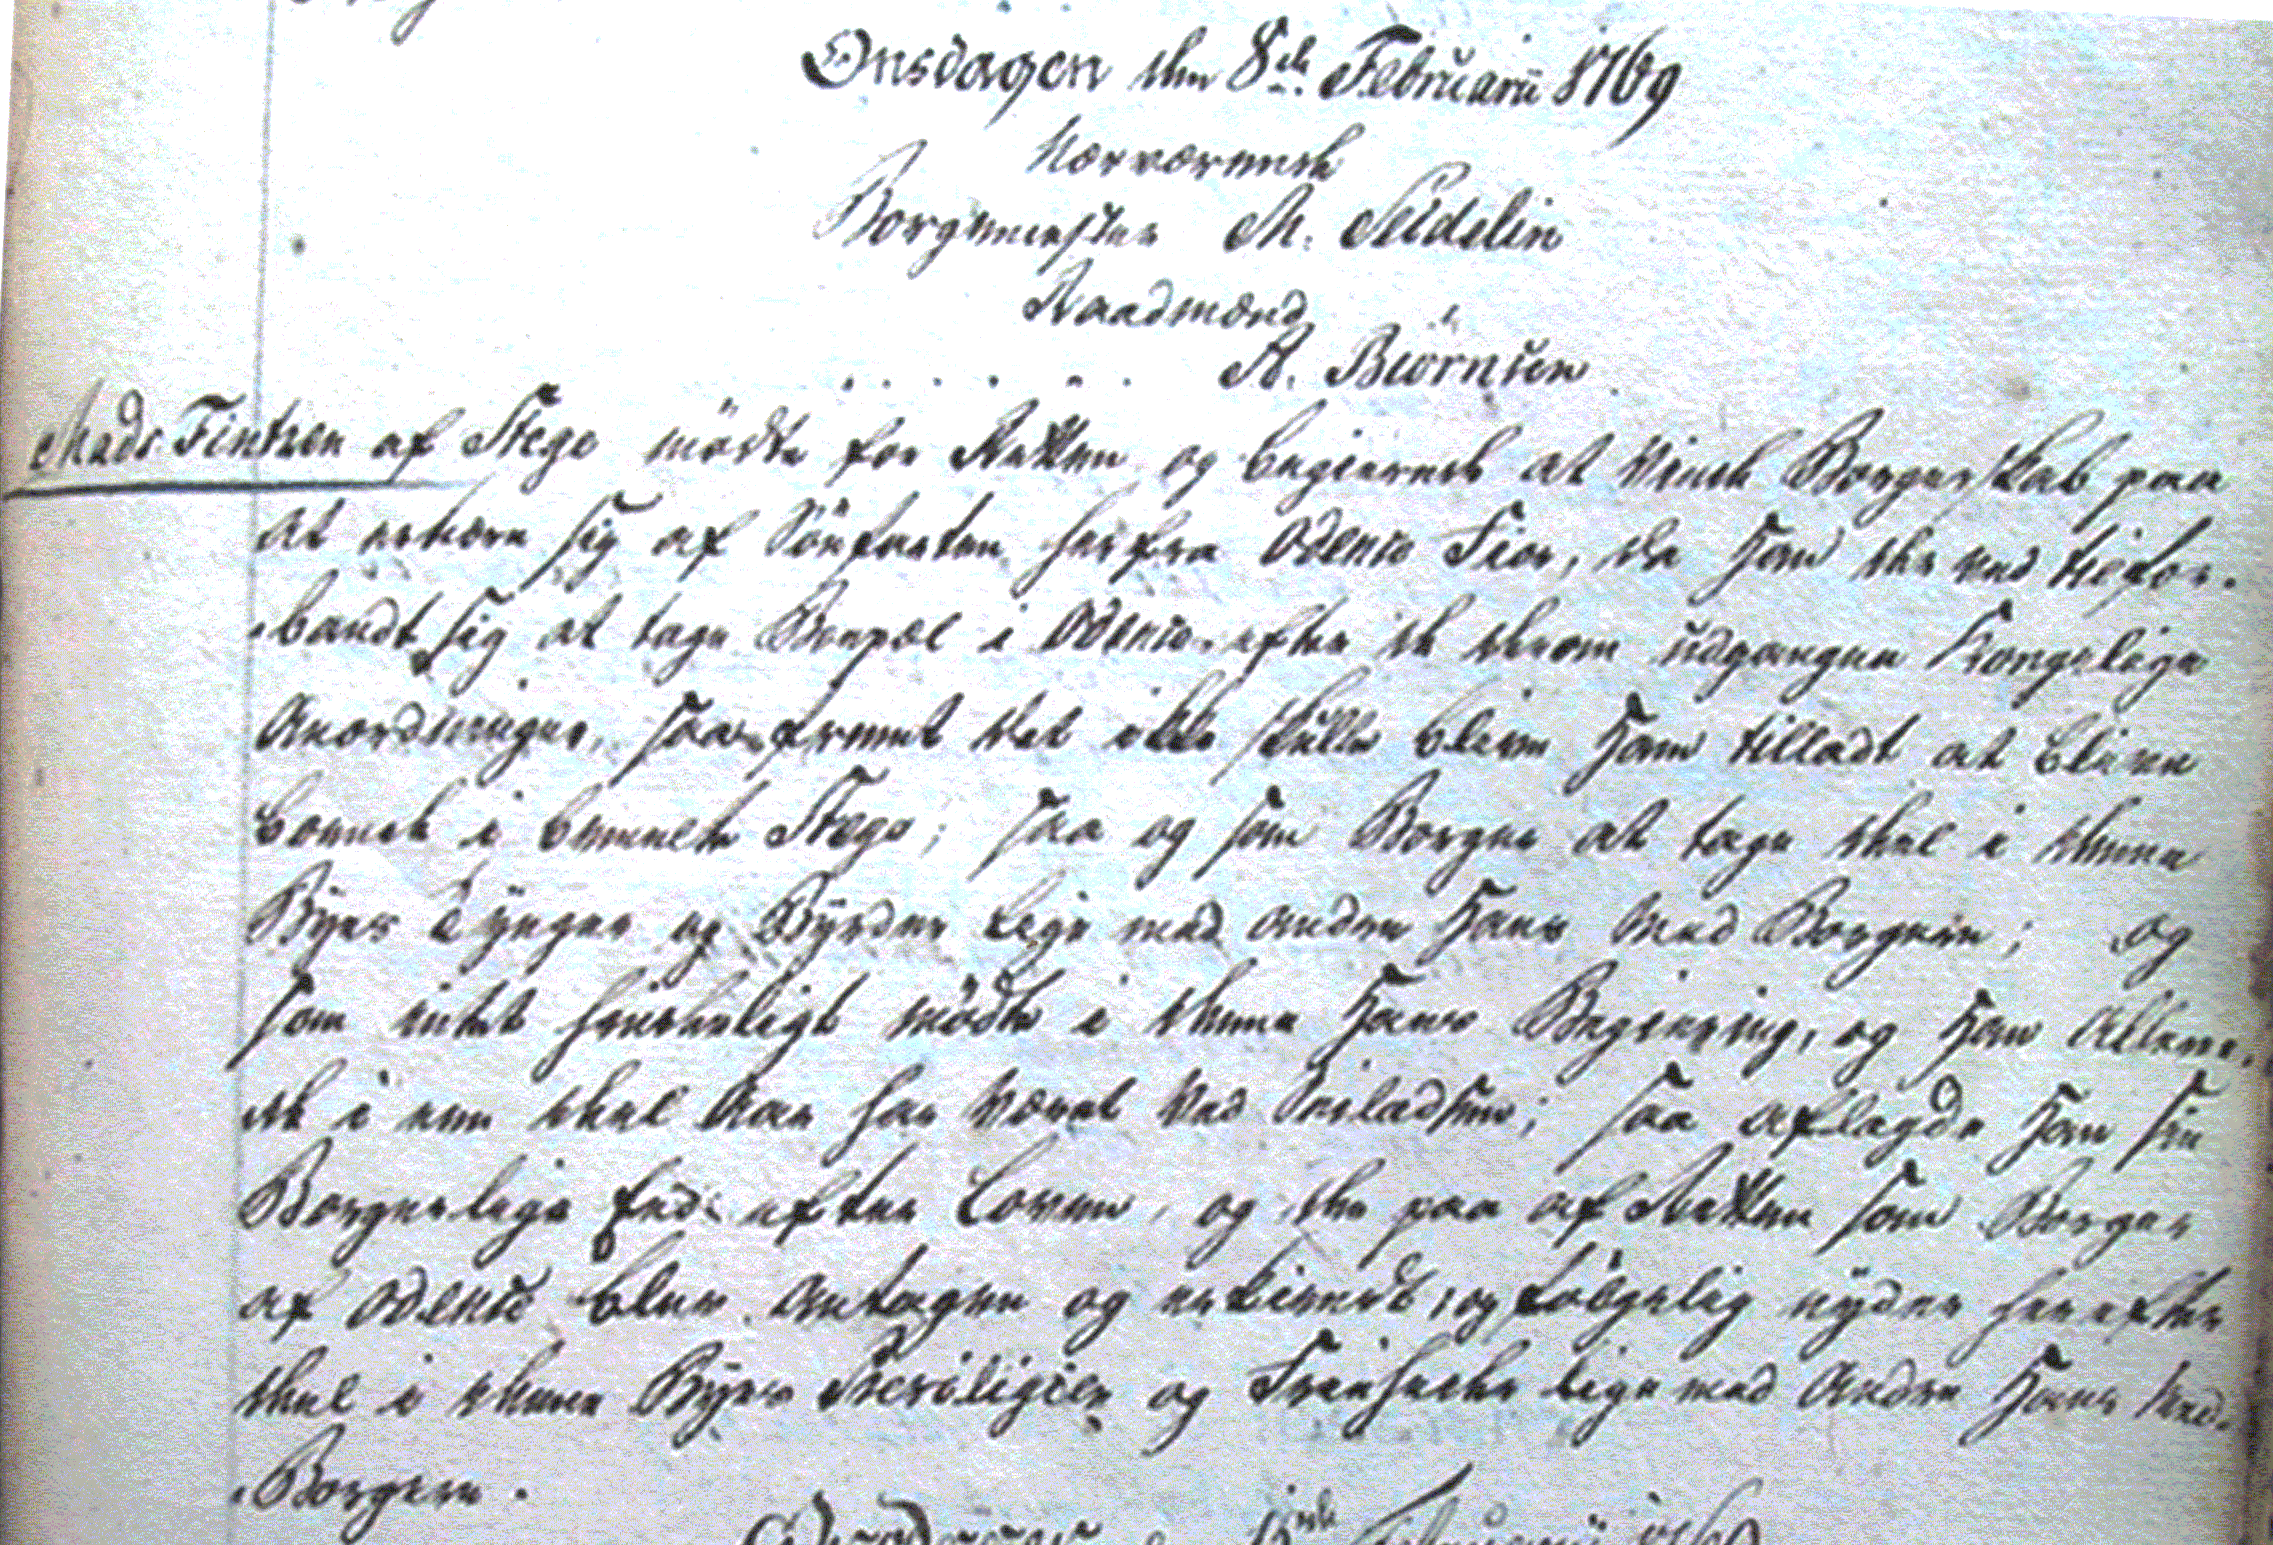 Onsdagen den 8de Februarii 1769
Nærværende
Borgemester M. Seidelin
Raadmænd
. . . . . . A. Biörnsen
Mads Fintzen af Stege mödte for Retten og begierede at vinde Borgerskab paa
at ernære sig af Söefarten herfra Odense Fior, da han der ved tilfor-
bandt sig at tage Boepæl i Odense efter de derom udgangne Kongelige
Anordninger, saa fremt det ikke skulle blive ham tilladt at blive
boende i bemelte Stege; saa og som Borger at tage deel i denne
Byes Tynger og Byrder lige med andre hans Med Borgere; og
som intet hinderligt mödte i denne hans Begiering, og han allere-
de i een deel Aar har været ved Seiladsen; saa aflagde han sin
Borgerlige Eed efter Loven, og der paa af Retten som Borger
af Odense blev antagen og erkiendt, og fölgelig nyder herefter
deel i denne Byes Previligier og Friheder lige med Andre hans Med-
Borgere.
Februarii